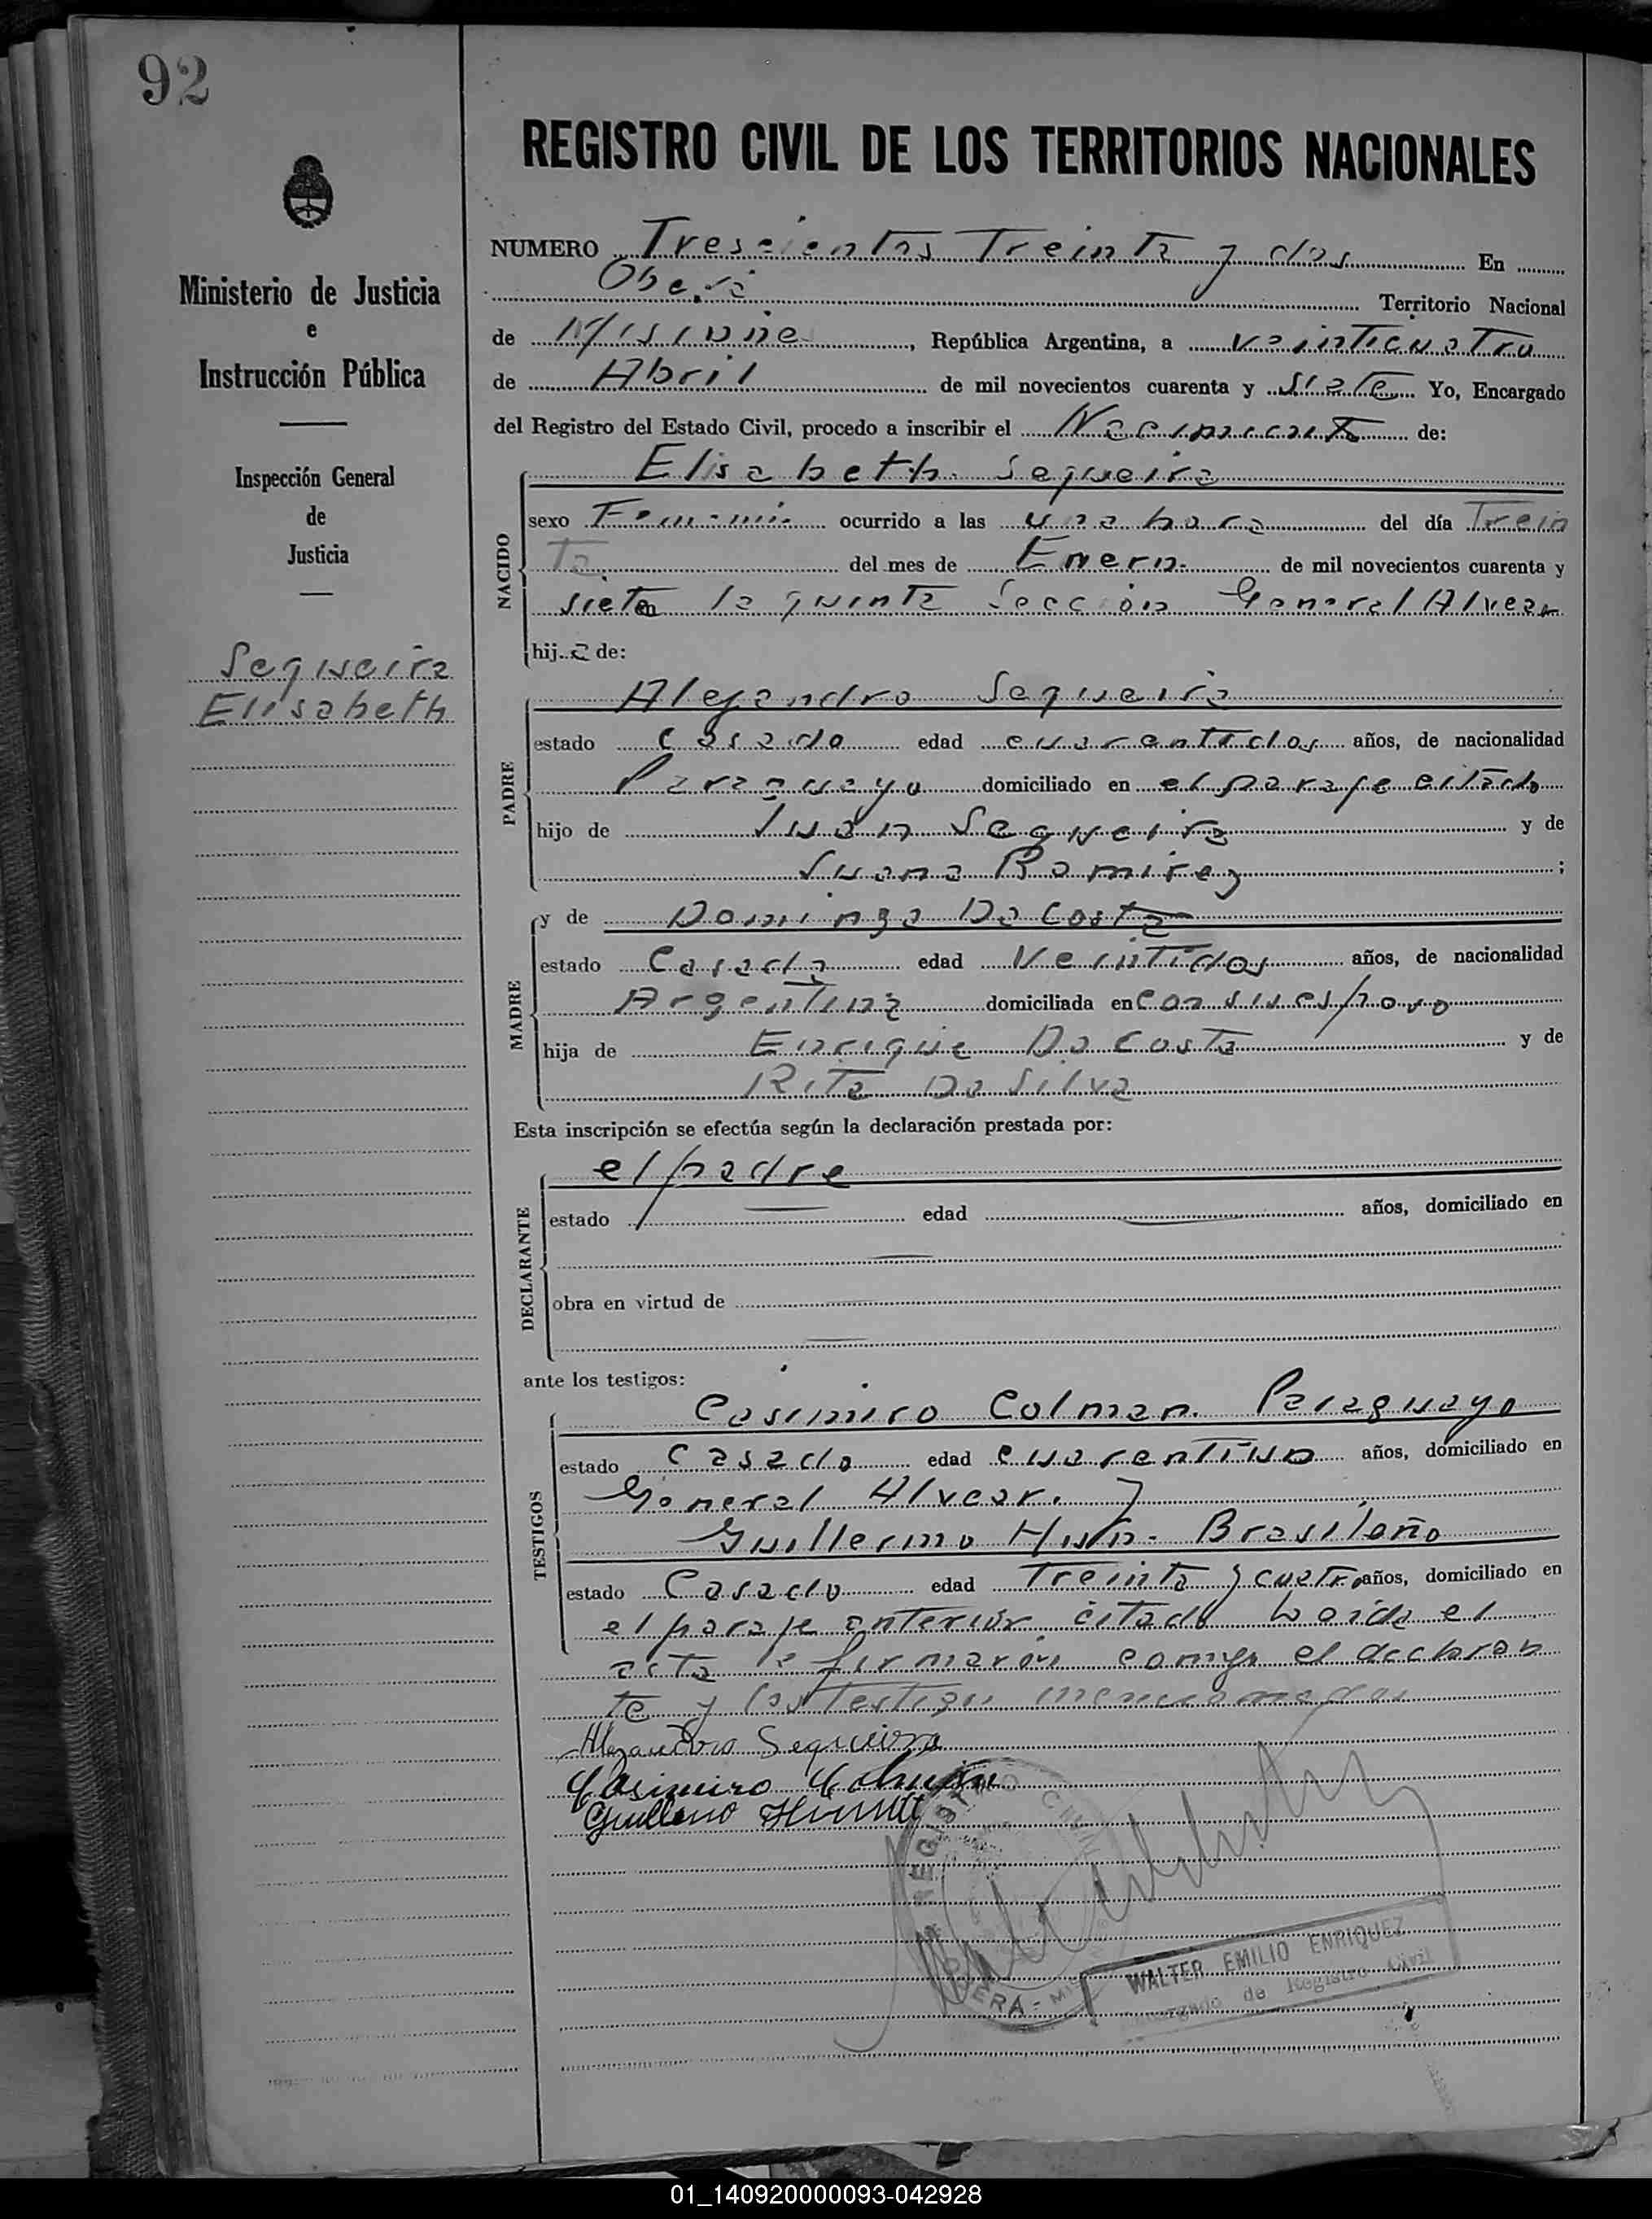 92
REGISTRO CIVIL DE LOS TERRITORIOS NACIONALES
Ministerio de Justicia
e
Instrucción Pública
Inspección General
de
Justicia
Sequeira
Elisabeth
NUMERO Trescientos Treinta y dos En
Oberá Territorio Nacional
de Misiones, República Argentina, a veinticuatro
de Abril de mil novecientos cuarenta y siete Yo, Encargado
del Registro del Estado Civil, procedo a inscribir el Nacimiento de:
NACIDO
Elisabeth Sequeira
sexo Femenino ocurrido a las una hora del día Trein
ta del mes de Enero de mil novecientos cuarenta y
siete en la quinta Sección General Alvear
hija de:
PADRE
Alejandro Sequeira
estado casado edad cuarentidos años, de nacionalidad
Paraguayo domiciliado en el paraje citado
hijo de Juan Sequeira y de
Juana Ramirez ;
MADRE
y de Dominga Da Costa
estado Casada edad Veintidos años, de nacionalidad
Argentina domiciliada en con su esposo
hija de Enrique Da Costa y de
Rita Da Silva
Esta inscripción se efectúa según la declaración prestada por:
DECLARANTE
el padre
estado edad años, domiciliado en
obra en virtud de
ante los testigos:
TESTIGOS
Casimiro Colman. Paraguayo
estado casado edad cuarentiun años, domiciliado en
General Alvear. y
Guillermo Brasileño
estado Casado edad Treinta y cuatro años, domiciliado en
el paraje anterior citado Leida el
acta la firmaron conmigo el declaran
te y los testigos mencionados
Alejandro Sequeira
Casimiro Colman
Guillermo
REGISTRO CIVIL
OBERA - MISIONES
WALTER EMILIO ENRIQUEZ
Encargado de Registro Civil
01_140920000093-042928